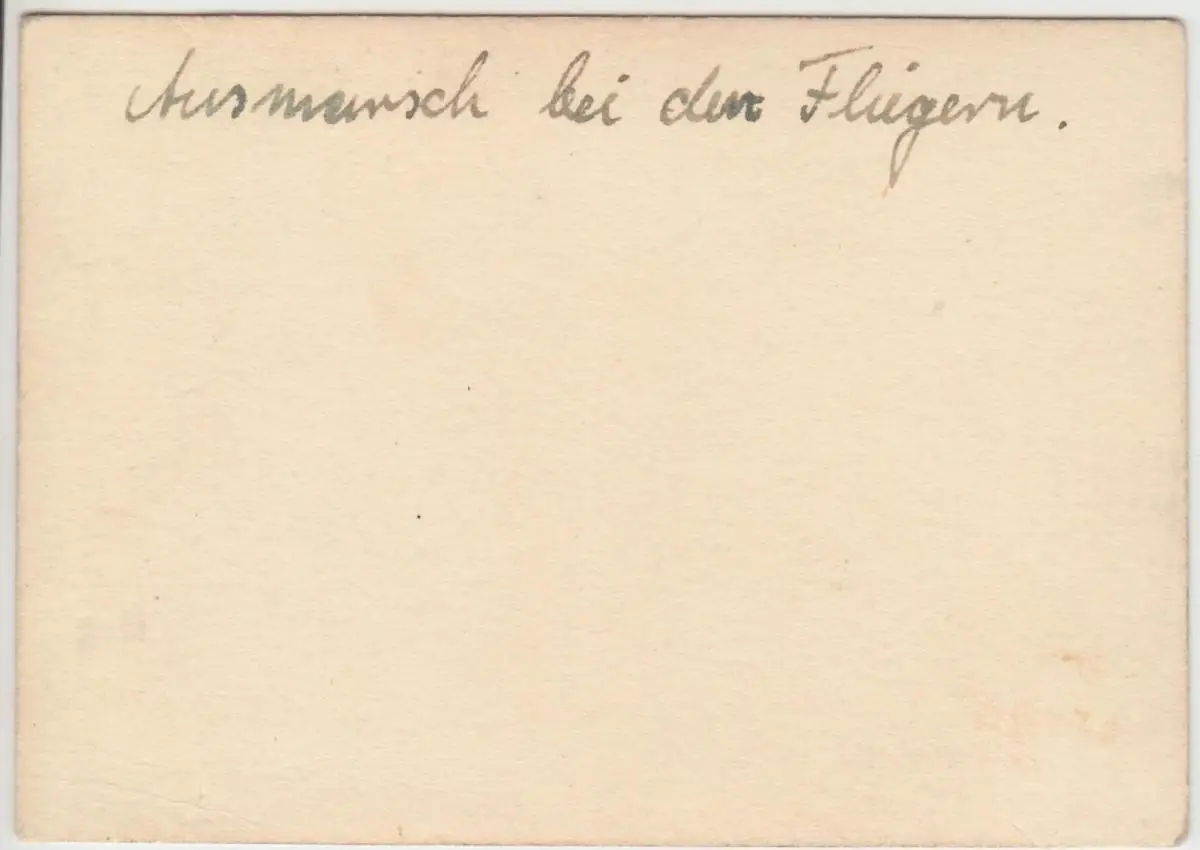 Ausmarsch bei den Fliegern.